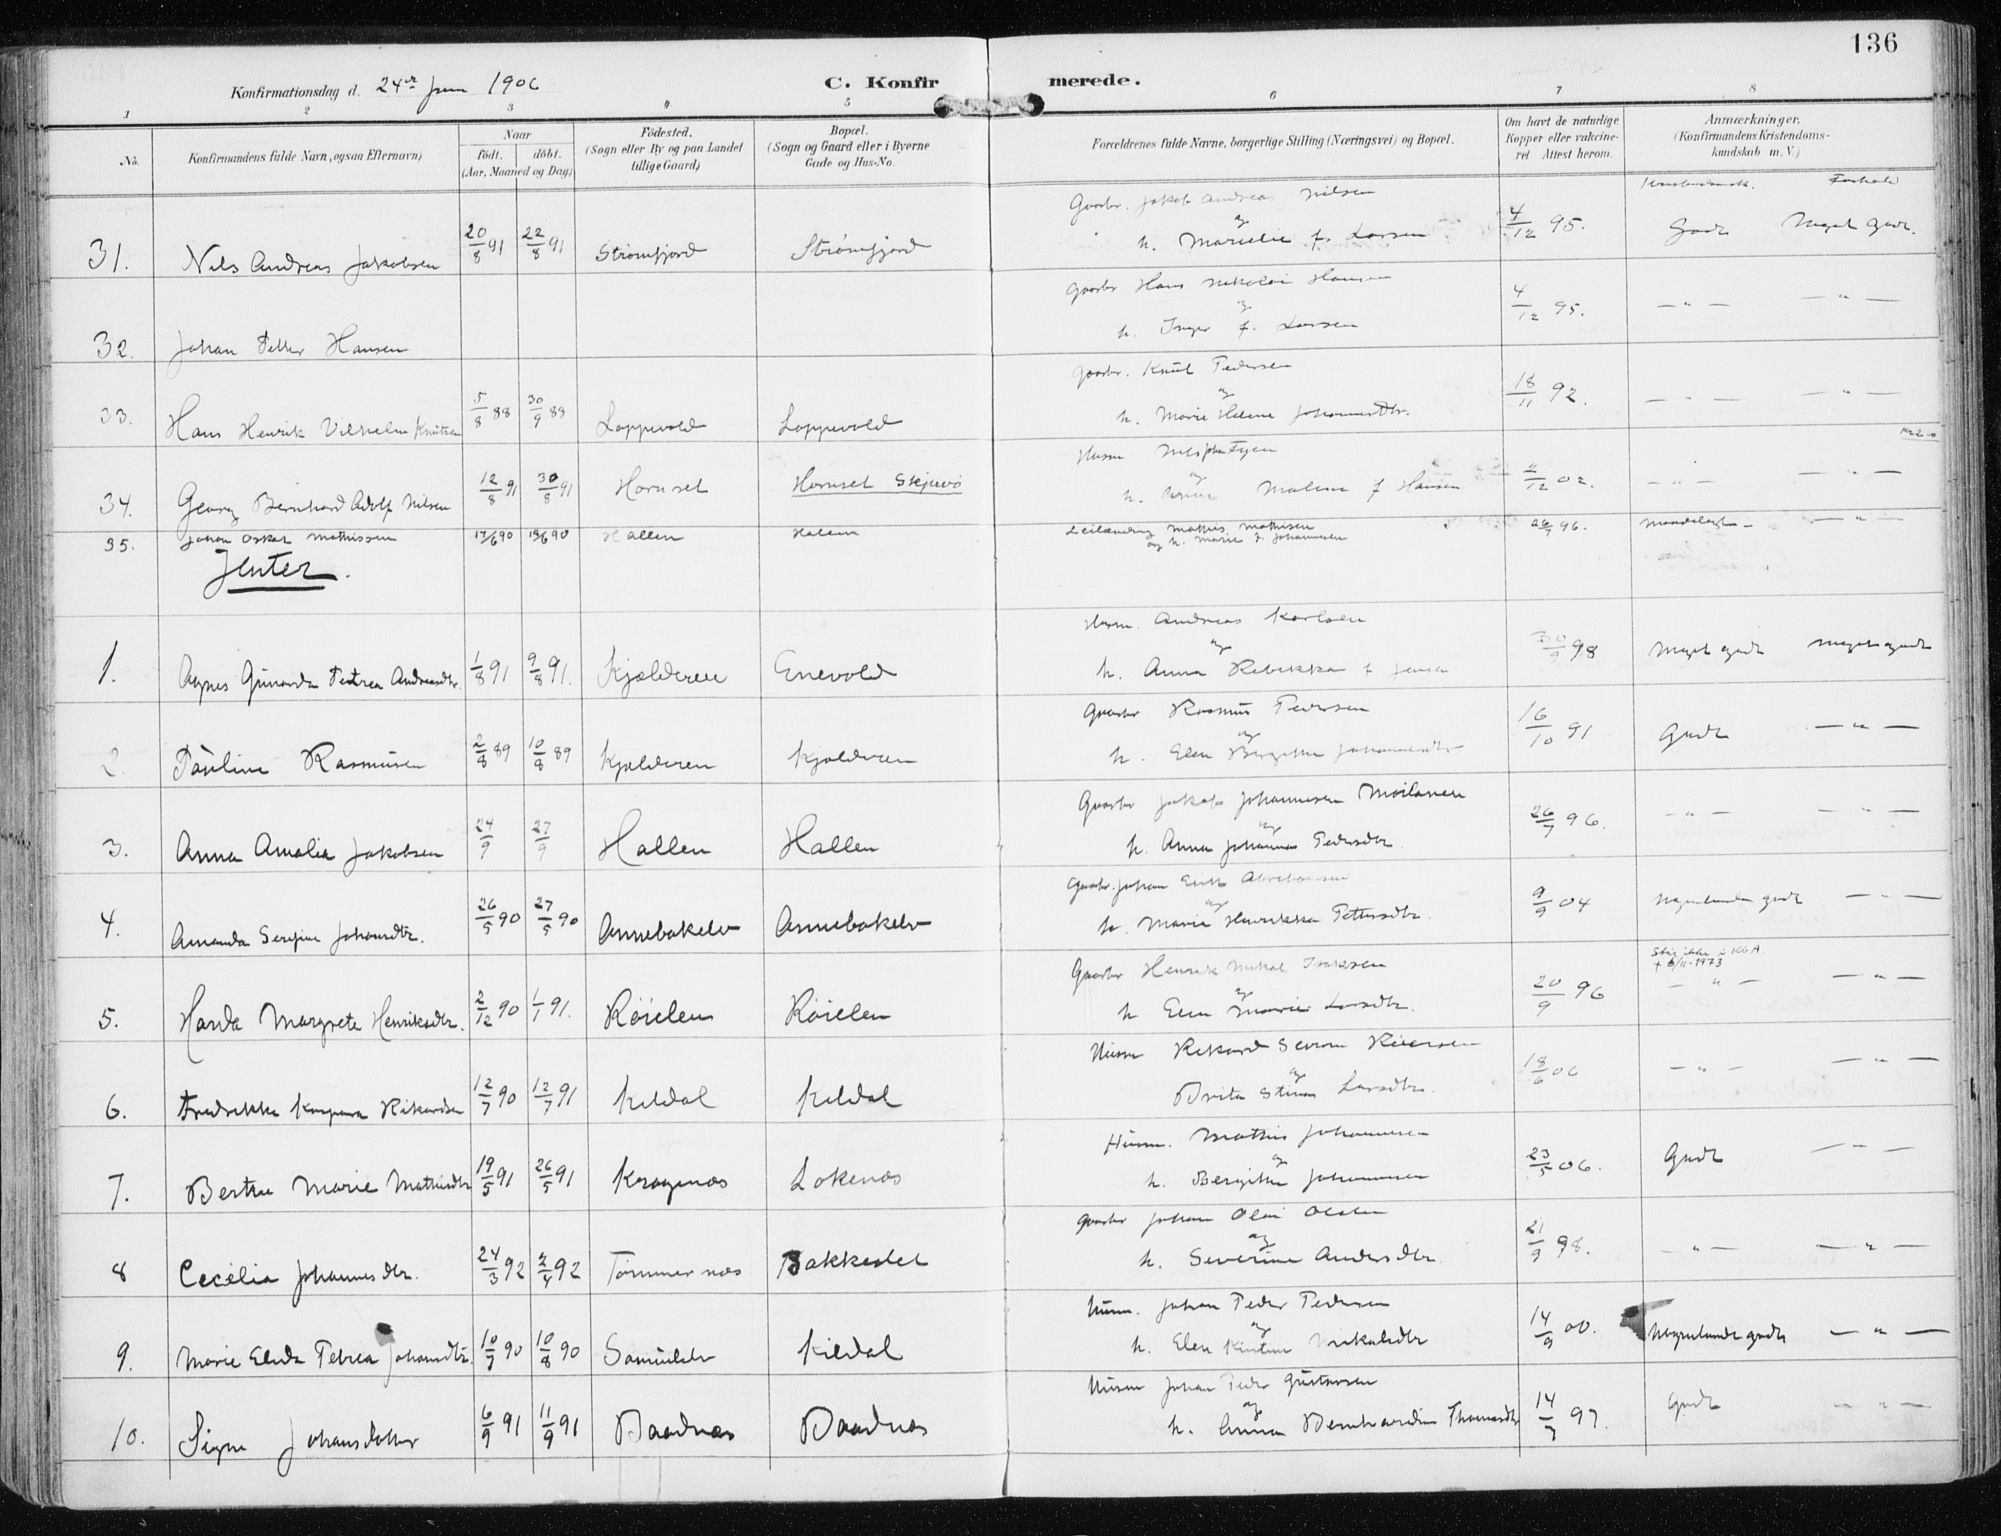 136
Konfirmationsdag d. 24de Juni 1906 C. Konfirmerede.
1 2 3 4 5 6 7 8
No. Konfirmandens fulde Navn, ogsaa Efternavn) Naar født. døbt. (Aar, Maaned og Dag) Fødested. (Sogn eller By og paa Landet tillige Gaard) Bopæl. (Sogn og Gaard eller i Byerne Gade og Hus-No. Forældrenes fulde Navne, borgerlige Stilling (Næringsvei) og Bopæl. Om havt de naturlige Kopper eller vakcineret Attest herom. Anmærkninger. (Konfirmandens Kristendomskundskab m. V.)
Gaarbr. Jakob Andreas Nilsen
31. Nils Andreas Jakobsen 20/8 91 22/8 91 Strømfjord Strømfjord og h. Marielie f. Larsen 4/12 95. Godt Meget godt.
Gaarbr Hans Nikolai Hansen
32. Johan Petter Hansen og h. Inger f. Larsen 4/12 95. — " — — " —
Gaarbr. Knut Pedersen
33. Hans Henrik Vilhelm Knutsen 5/8 88 30/9 88 Loppevold Loppevold og h. Marie Helene Johannesdtr. 18/11 92. — " — — " —
34. Georg Bernhard Adolf Nilsen 12/8 91 30/8 91 Hornset Hornset Skjervø og h. Malene f Hansen 4/12 02. — " — — " —
35. Johan Oskar Mathissen 17/6 90 19/6 90 Hallen Halen Leilænding Mathis Mathisen og h. Marie f. Johannesen 26/7 96. — " —
Jenter.
Husm. Andreas Karlsen
1. Agnes Gunarda Petrea Andreasdtr. 1/8 91 9/8 91. Kjælderen Enevold og h. Anna Rebekka f Jensen 30/9 98 Meget godt Meget godt
Gaarbr Rasmus Pedersen
2. Pauline Rasmusen 2/8 89 10/8 89 Kjælderen Kjælderen og h. Elen Bergitte Johannesdtr 16/10 91 Godt — " —
Gaarbr Jakob Johannesen Moilanen
3. Anna Amalia Jakobsen 24/9 27/9 Hallen Hallen og h. Anna Johanna Pedersdtr. 26/7 96. — " — — " —
Gaarbr. Johan Erik Abrahamsen
4. Amanda Serefine Johansdtr. 26/5 90 27/5 90 Annebakelv Annebakelv og h. Marie Henrikka Pettersdtr. 9/9 04 Nogenlunde godt — " —
Gaarbr Henrik Mikal Isaksen Står ikke i KlA. + 6/11-1973
5. Harda Margrete Henriksdtr. 2/12 90 1/1 91. Røielen Røielen og h Elen Marie Larsdtr. 20/9 96 — " — — " —
Husm Rikard
6. Fredrikke Kaspara Rikardsen 12/7 90 12/7 91 Kildal Kildal og Brita Stina Larsdtr. 18/6 06 — " — — " —
Husm. Mathis Johannesen
7. Bertha Marie Mathisdtr 19/5 91 26/5 91 Kragenæs Lokenæs og h. Bergitte Johannesen 23/5 06. Godt — " —
Gaarbr Johan Olai Olsen
8 Cecelia Johannesdtr. 24/3 92 2/4 92 Tømmernæs Bakkeslet og h. Severine Andersdtr. 21/9 98. — " — — " —
Husm. Johan Peder Pedersen
9. Marie Elida Petrea Johansdtr. 10/7 90 10/8 90 Samuelelv Kildal og h. Elen Kirstine Mikalsdtr 14/9 00. Nogenlunde godt — " —
Husm Johan Peder Gustavsen
10. Signe Johansdatter 6/9 91 11/9 91 Baadnæs Baadnæs og h. Anna Bernhardine Thomasdtr 14/7 97. Godt — " —